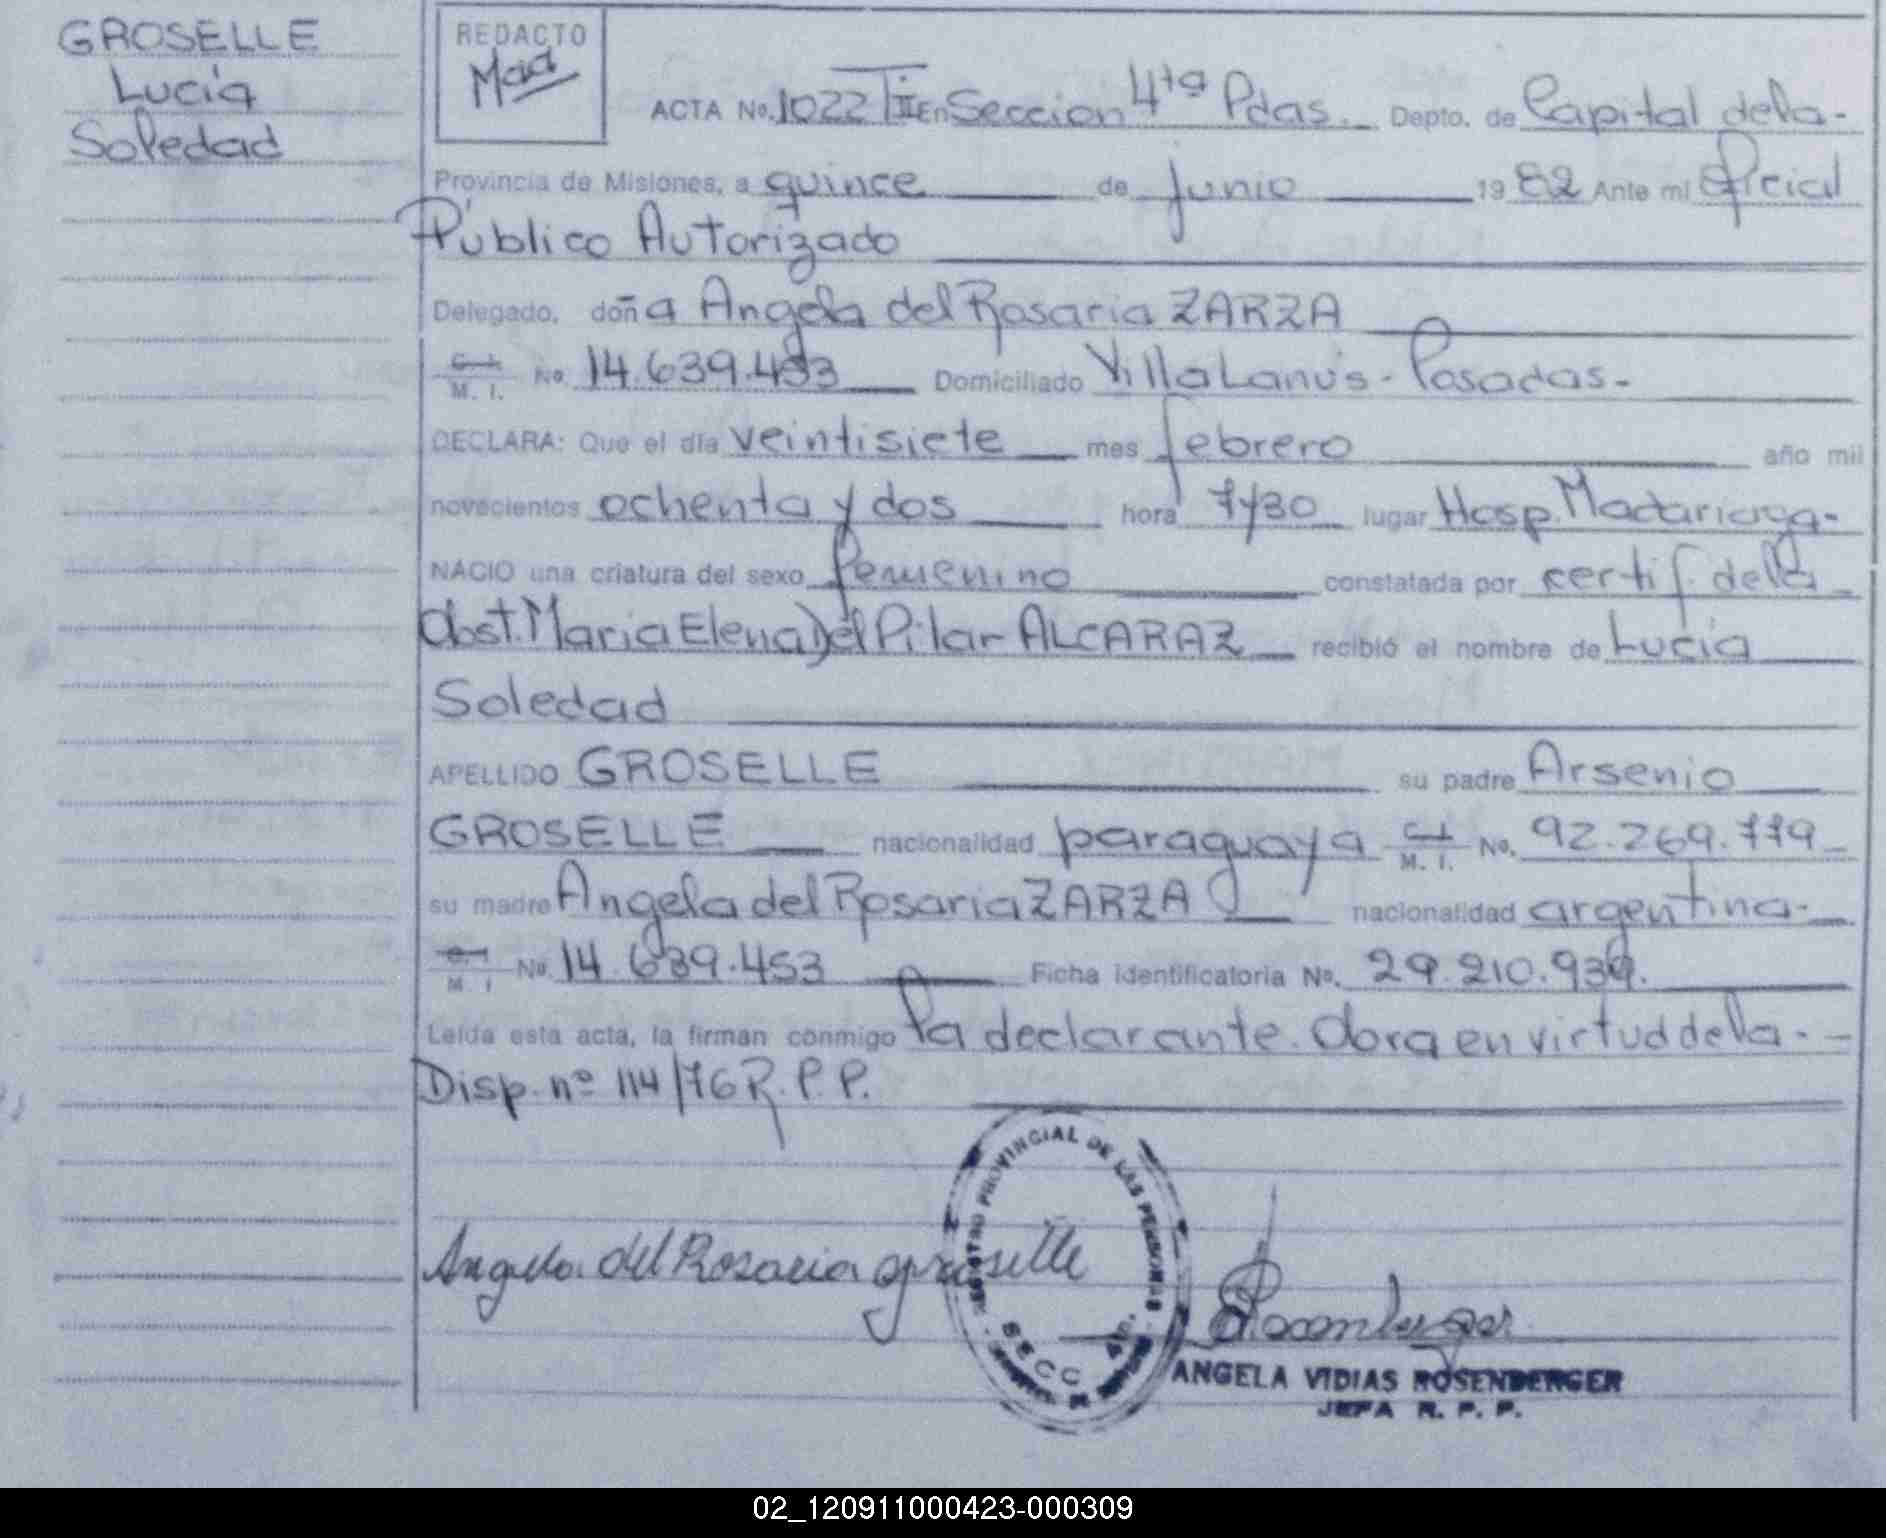 GROSELLE
Lucía
Soledad
REDACTO
ACTA No. 1022 TII En Seccion 4ta Pdas. Depto. de Capital de la.-
Provincia de Misiones, a quince de junio 1982 Ante mi Oficial
Público Autorizado
Delegado, doña Angela del Rosaria ZARZA
C. I.
M. I. No. 14.639.453 Domiciliado Villa Lanús - Posadas.-
DECLARA: Que el día veintisiete mes febrero año mil
novecientos ochenta y dos hora 7y30 lugar Hosp. Madariaga-
NACIO una criatura del sexo femenino constatada por certif. de la
Obst. Maria Elena Del Pilar ALCARAZ recibió el nombre de Lucía
Soledad
APELLIDO GROSELLE su padre Arsenio
GROSELLE nacionalidad paraguaya C. I. M. I. No. 92.269.779
su madre Angela del Rosaria ZARZA nacionalidad argentina.-
C. I. M. I. No. 14.639.453 Ficha identificatoria No. 29.210.939.
Leída esta acta, la firman conmigo la declarante. Obra en virtud de la.-
Disp. nº 114/76 R.P.P.
REGISTRO PROVINCIAL DE LAS PERSONAS
SECC. 4a.
Angela del Rosaria groselle
ANGELA VIDIAS ROSENBERGER
JEFA R. P. P.
02_120911000423-000309